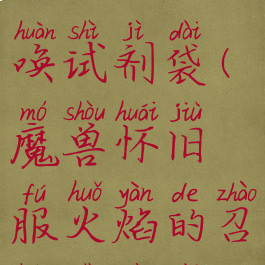 huàn shì jì dài
唤试剂袋(
mó shòu huái jiù
魔兽怀旧
fú huǒ yàn de zhào
服火焰的召